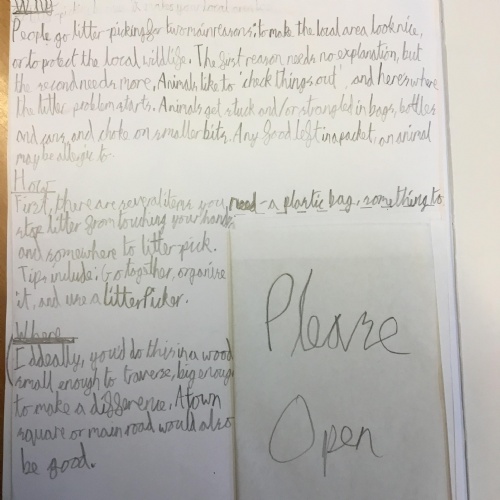 Why
People go litter-picking for two main reasons: to make the local area look nice,
or to protect the local wildlife. The first reason needs no explanation, but
the second needs more. Animals like to 'check things out', and here's where
the litter problem starts. Animals get stuck and/or strangled in bags, bottles
and cans, and choke on smaller bits. Any food left in a packet, an animal
may be allergic to.
How
First, there are several items you need - a plastic bag, something to
stop litter from touching your hands
and somewhere to litter-pick.
Tips include: Go together, organise
it, and use a litter Picker.
Where
(Iddeally, you'd do this in a wood
small enough to traverse, big enough
to make a difference. A town
square or main road would also
be good.
Please
Open